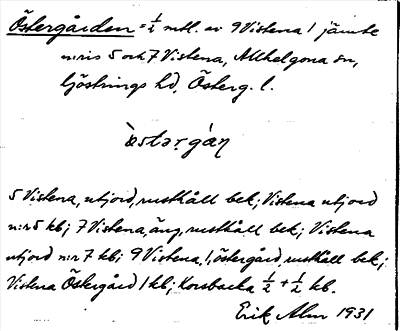 Östergården = ½ mtl. av 9 Vistena 1 jämte
n:ris 5 och 7 Vistena, Allhelgona sn,
Göstrings hd, Österg. l.
5 Vistena, utjord, rusthåll bek; Vistena utjord
n:r 5 kb; 7 Vistena, äng, rusthåll bek; Vistena
utjord n:r 7 kb; 9 Vistena, 1, östergård, rusthåll bek;
Vistena Östergård 1 kb; Korsbacka ½ + ½ kb.
Erik Alm 1931